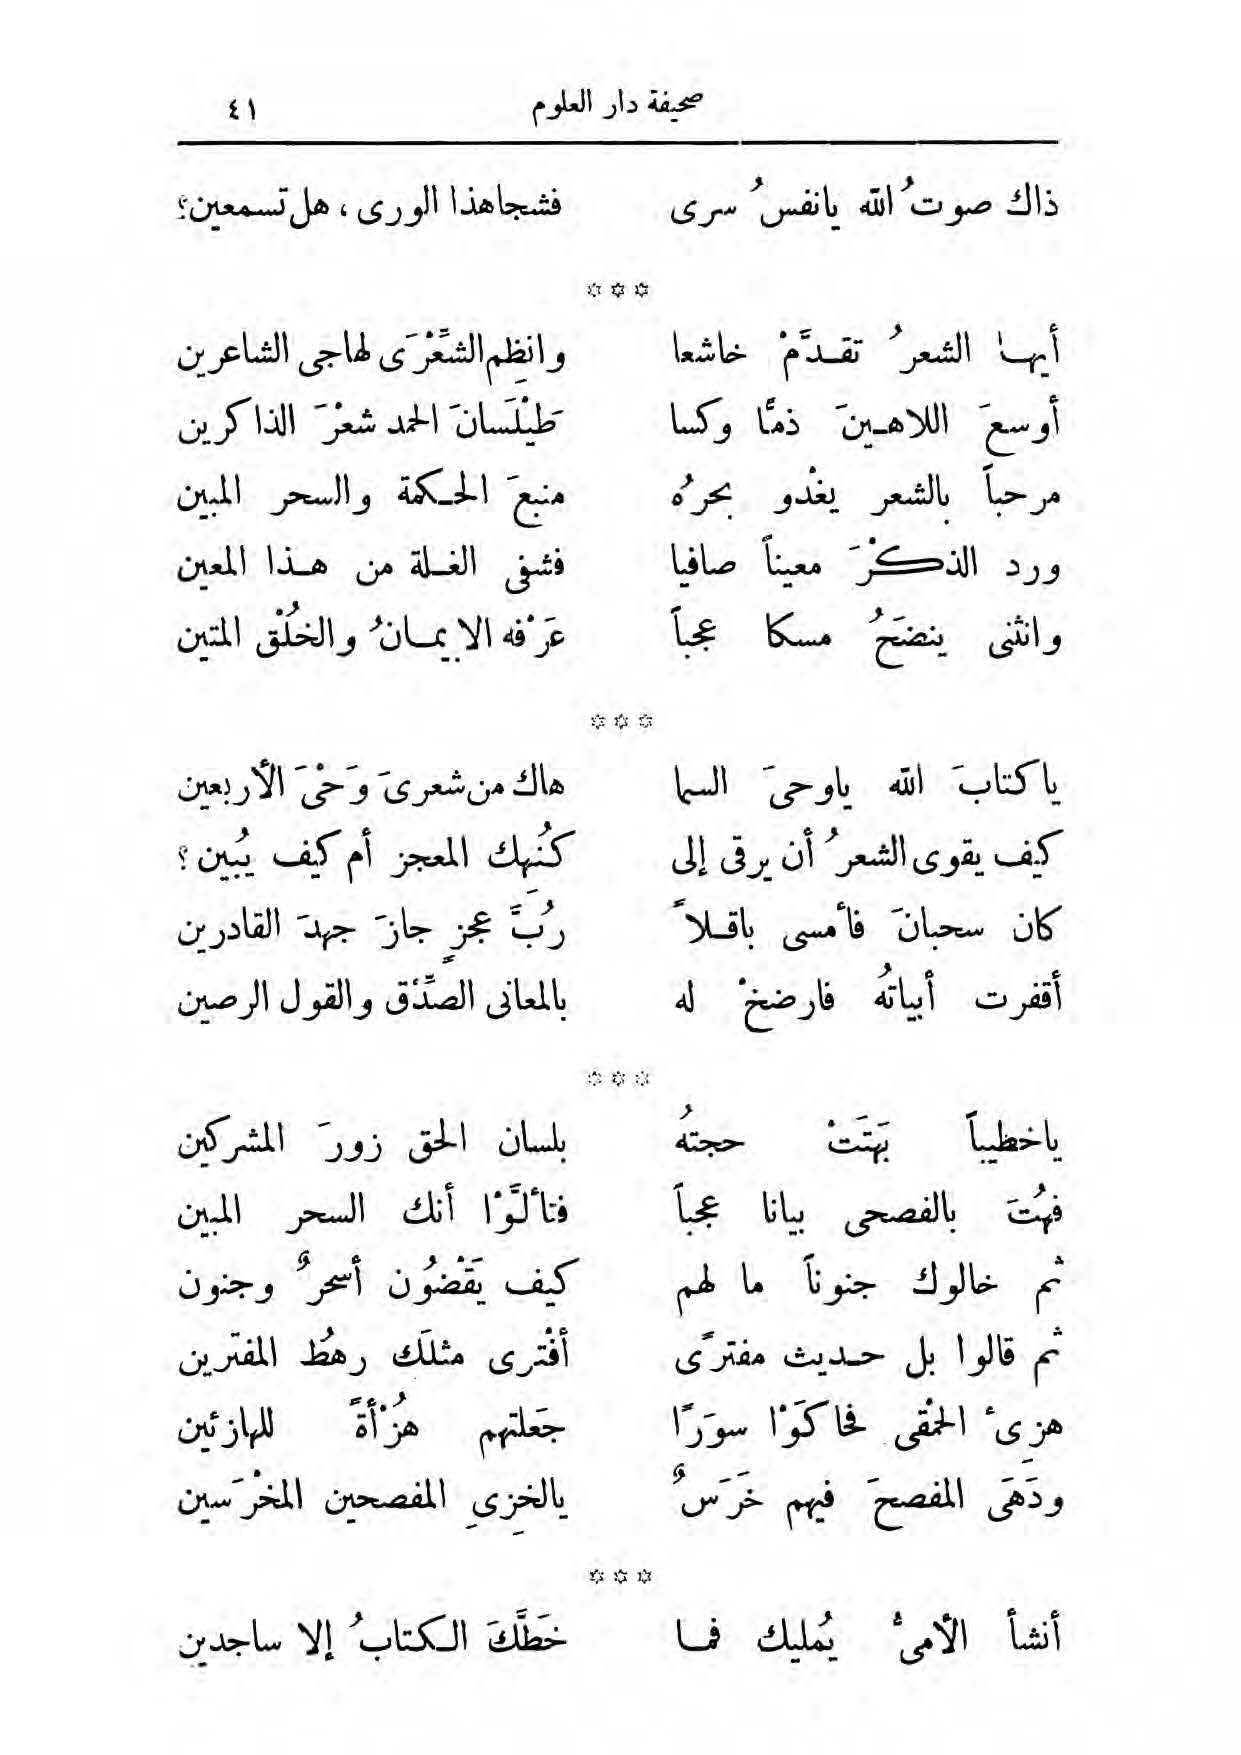 صحيفة دار العلوم ٤١
ذاك صوتُ الله يانفسُ سرى فشجا هذا الورى ، هل تسمعين؟
☆☆☆
أيها الشعرُ تقدَّمْ خاشعا وانظِم الشِّعْرَى لهاجى الشاعرين
أوسعَ اللاهينَ ذمًّا وكسا طَيْلَسانَ الحمد شعْرَ الذاكرين
مرحباً بالشعر يغْدو بحرُه منبعَ الحكمة والسحر المبين
ورد الذكْرَ معيناً صافيا فشفى الغلة من هذا المعين
وانثنى ينضَحُ مسكا عجباً عَرْفه الايمانُ والخُلْق المتين
☆☆☆
ياكتابَ الله ياوحىَ السما هاك من شعرىَ وَحْىَ الأربعين
كيف يقوى الشعرُ أن يرقى إلى كُنهك المعجز أم كيف يُبين ؟
كان سحبانَ فأمسى باقلاً رُبَّ عجزٍ جازَ جهدَ القادرين
أقفرت أبياتُه فارضخْ له بالمعانى الصِّدْق والقول الرصين
☆☆☆
ياخطيباً بَهتَتْ حجتهُ بلسان الحق زورَ المشركين
فهُتَ بالفصحى بيانا عجباً فتألَّوْا أنك السحر المبين
ثم خالوك جنوناً ما لهم كيف يَقْضُون أسحرٌ وجنون
ثم قالوا بل حديث مفترًى أفْترى مثلَك رهطُ المفترين
هزِئ الحمْقى فحاكَوْا سورًا جَعلتهم هُزْأةً للهازئين
ودَهَى المفصحَ فيهم خَرَسٌ يالخِزىِ المفصحين المخْرَسين
☆☆☆
أنشأ الأمىُّ يُمليك فما خَطَّكَ الكتابُ إلا ساجدين